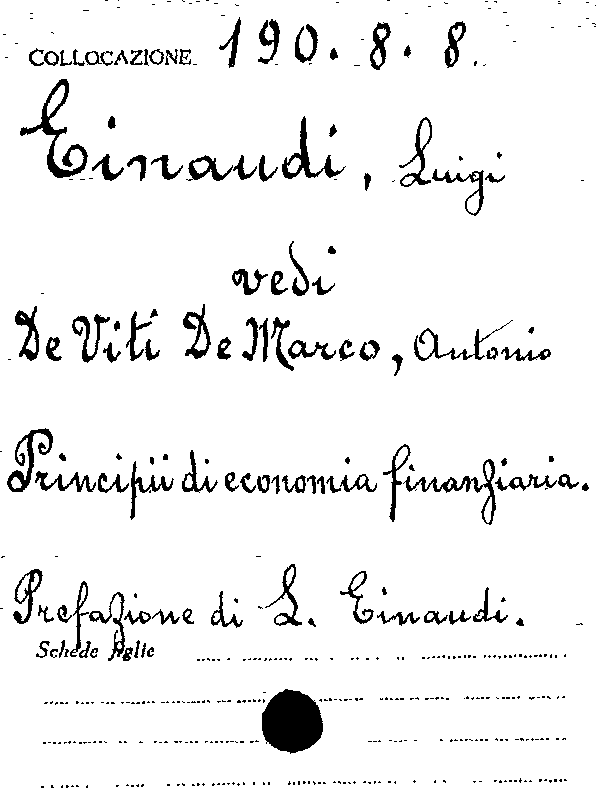 COLLOCAZIONE 190. 8. 8.
Einaudi, Luigi
vedi
De Viti De Marco, Antonio
Principii di economia finanziaria.
Prefazione di L. Einaudi.
Schede figlie